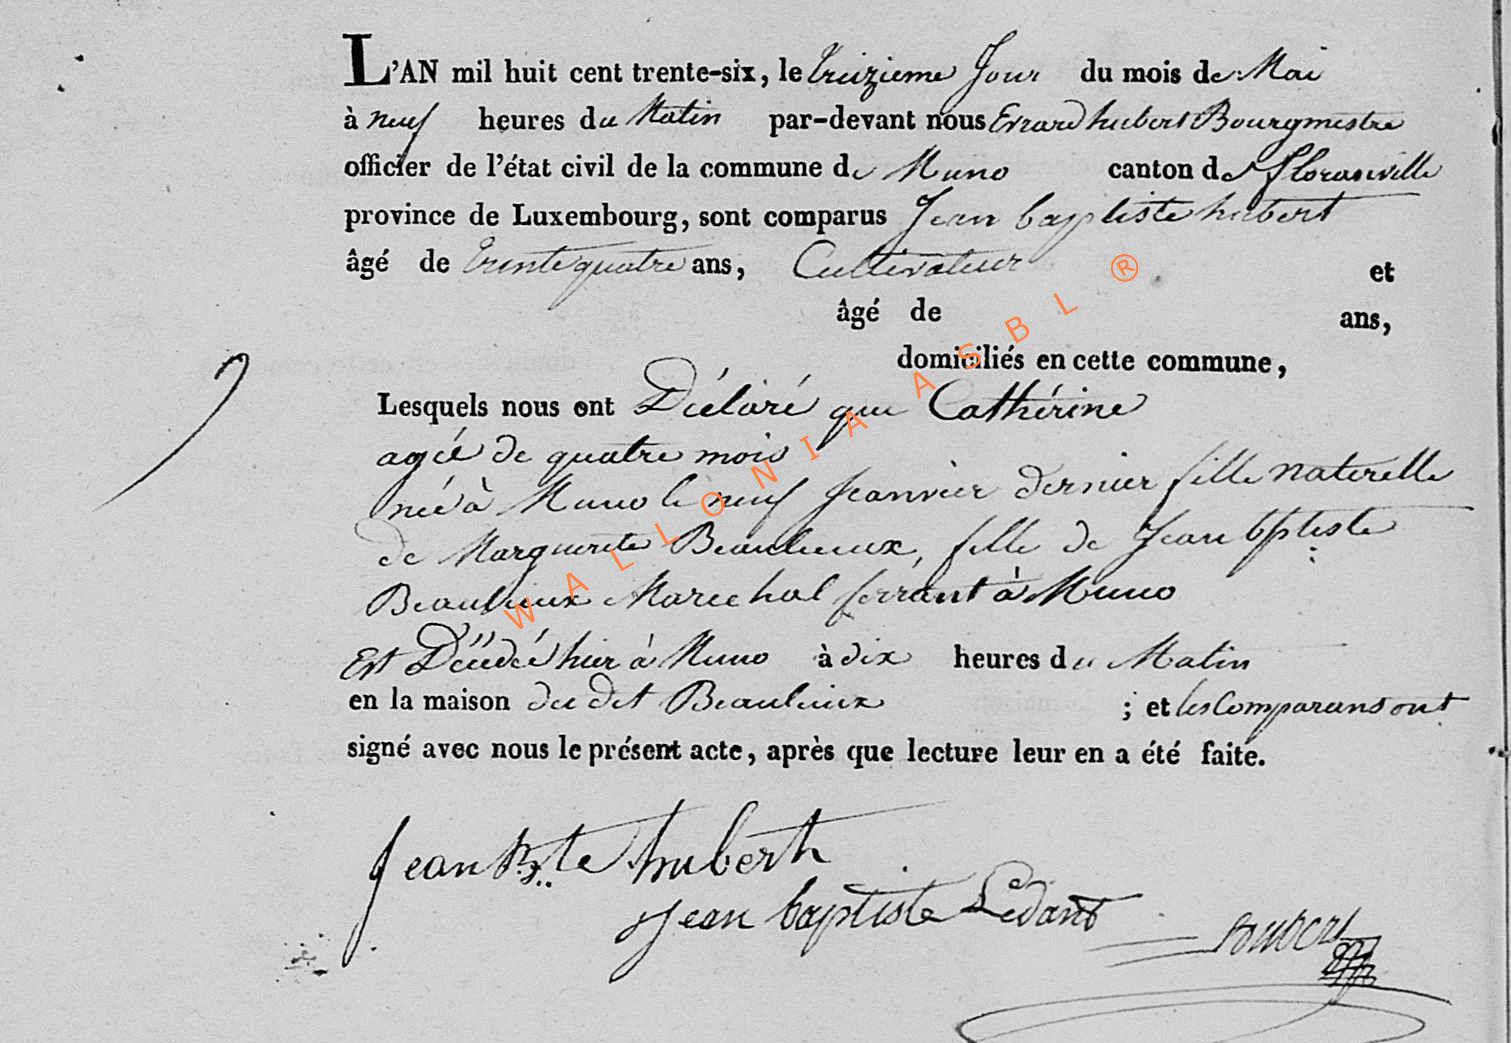 L'AN mil huit cent trente-six, le treizieme Jour du mois de Mai
à neuf heures du Matin par-devant nous Errard hubert Bourgmestre
officier de l'état civil de la commune de Muno canton de Florenville
province de Luxembourg, sont comparus Jean baptiste hubert
âgé de trente quatre ans, Cultivateur et
âgé de ans,
domiciliés en cette commune,
Lesquels nous ont Déclaré que Cathérine
agéé de quatre mois
néé à Muno le neuf Jeanvier dernier fille naterelle
de Marguerite Beaulieux, fille de Jean bptiste
Beaulieux Marechal ferrant à Muno
Est Décédéé hier à Muno à dix heures du Matin
en la maison du dit Beaulieux ; et les Comparans ont
signé avec nous le présent acte, après que lecture leur en a été faite.
Jean Bte hubert
Jean baptiste Ledant
hubert
WALLONIA ASBL ®